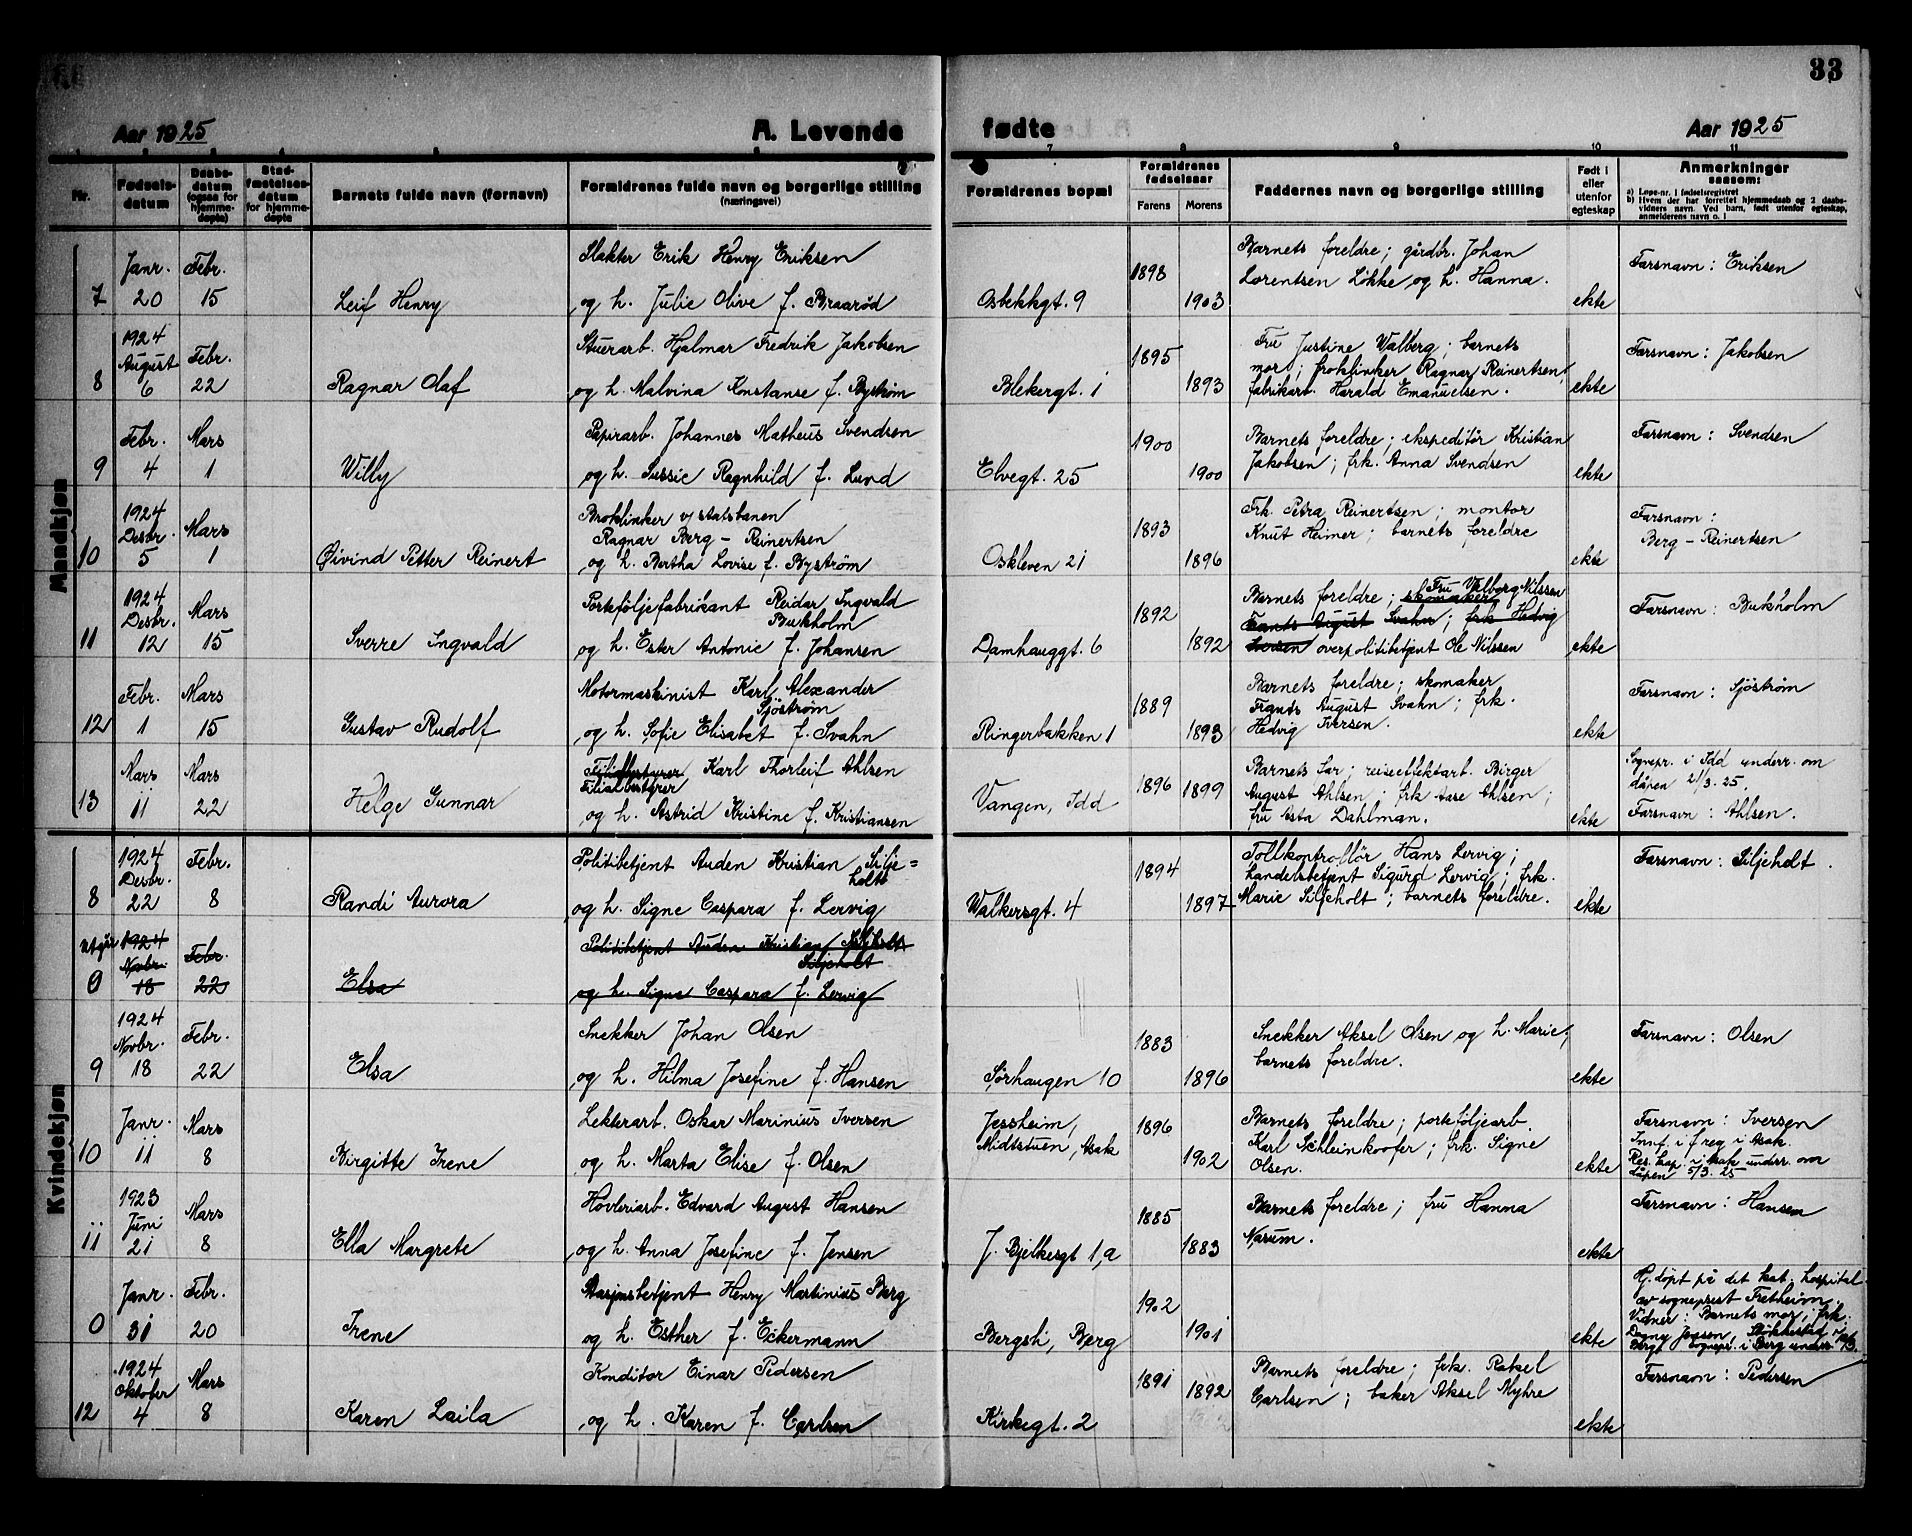 33
Aar 1925
A. Levende
fødte
Aar 1925
7 8 9 10 11
Nr.
Fødsels-
datum
Daabs-
datum
(ogsaa for
hjemme-
døpte)
Stad-
fæstelses-
datum
for hjemme-
døpte
Barnets fulde navn (fornavn)
Formældrenes fulde navn og borgerlige stilling
(næringsvei)
Forældrenes bopæl
Forældrenes
fødselsaar
Farens
Morens
Faddernes navn og borgerlige stilling
Født i
eller
utenfor
egteskap
Anmerkninger
saasom:
a) Løpe-nr. i fødselsregistret
b) Hvem der har forrettet hjemmedaab og 2 daabs-
vidners navn. Ved barn, født utenfor egteskap,
anmelderens navn o. l
Mandkjøn
7
Janr.
20
Febr.
15
Leif Henry
Slakter Erik Henry Eriksen
og h. Julie Olive f. Braarød
Osbekkgt. 9
1898
1903
Barnets foreldre; gårdbr. Johan
Lorentsen Løkke og h. Hanna.
ekte
Farsnavn: Eriksen
8
1924
August
6
Febr.
22
Ragnar Olaf
Stuerarb. Hjalmar Fredrik Jakobsen
og h. Malvina Konstanse f. Bystrøm
Blekergt. 1
1895
1893
Fru Justine Walberg; barnets
mor; broklinker Ragnar Reinertsen;
fabrikarb. Harald Emanuelsen.
ekte
Farsnavn: Jakobsen
9
Febr.
4
Mars
1
Willy
Papirarb. Johannes Matheus Svendsen
og h. Sussie Ragnhild f. Lund
Elvegt. 25
1900
1900
Barnets foreldre; ekspeditør Kristian
Jakobsen; frk. Anna Svendsen
ekte
Farsnavn: Svendsen
10
1924
Desbr.
5
Mars
1
Øivind Petter Reinert
Broklinker v/ statsbanen
Ragnar Berg - Reinertsen
og h. Bertha Lovise f. Byström
Oskleven 21
1893
1896
Frk. Petra Reinertsen; montør
Knut Heimer; barnets foreldre
ekte
Farsnavn:
Berg - Reinertsen
11
1924
Desbr.
12
Mars
15
Sverre Ingvald
Porteføljefabrikant Reidar Ingvald
Bukholm
og h. Ester Antonie f. Johansen
Damhauggt. 6
1892
1892
Fru Valborg Nilssen
Barnets foreldre; skomaker
Frants August Svahn; frk Hedvig
Iversen overpolitibetjent Ole Nilssen
ekte
Farsnavn: Bukholm
12
Febr.
1
Mars
15
Gustav Rudolf
Motormaskinist Karl Alexander
Sjöström
og h. Sofie Elisabet f. Svahn
Ringerbakken 1
1889
1893
Barnets foreldre; skomaker
Frants August Svahn; frk.
Hedvig Iversen.
ekte
Farsnavn: Sjöström
13
Mars
11
Mars
22
Helge Gunnar
Filialbestyrer, Karl Thorleif Ahlsen
Filialbestyrer
og h. Astrid Kristine f. Kristiansen
Vangen, Idd
1896
1899
Barnets far; reiseeffektarb. Birger
August Ahlsen; frk Aase Ahlsen;
fru Asta Dahlman.
ekte
Sognepr. i Idd underr. om
dåpen 21/3. 25.
Farsnavn: Ahlsen.
Kvindekjøn
8
1924
Desbr.
22
Febr.
8
Randi Aurora
Politibetjent Auden Kristian Silje=
holt
og h. Signe Caspara f. Lervig
Walkersgt. 4
1894
1897
Tollkontrollør Hans Lervig;
handelsbetjent Sigurd Lervig; frk.
Marie Siljeholt; barnets foreldre.
ekte
Farsnavn: Siljeholt.
utgår
0
1924
Novbr.
18
Febr.
22
Elsa
Politibetjent Auden Kristian
Siljeholt
og h. Signe Caspara f. Lervig
9
1924
Novbr.
18
Febr.
22
Elsa
Snekker Johan Olsen
og h. Hilma Josefine f. Hansen
Sørhaugen 10
1883
1896
Snekker Aksel Olsen og h. Marie;
barnets foreldre.
ekte
Farsnavn: Olsen
10
Janr.
11
Mars
8
Birgitte Irene
Lekterarb. Oskar Marinius Iversen
og h. Marta Elise f. Olsen
Jessheim,
Midtstuen, Asak
1896
1902
Barnets foreldre; porteføljearb.
Karl Schleinkoofer; frk. Signe
Olsen.
ekte
Farsnavn: Iversen
Innf. i f reg i Asak.
Res. kap. i Asak underr. om
dåpen 5/3. 25
11
1923
Juni
21
Mars
8
Ella Margrete
Høvleriarb. Edvard August Hansen
og h. Anna Josefine f. Jensen
J. Bjelkesgt 1,a
1885
1883
Barnets foreldre; fru Hanna
Narum.
ekte
Farsnavn: Hansen
0
Janr.
31
Febr.
20
Irene
Stasjonsbetjent Henry Martinius Berg
og h. Esther f. Eckermann
Bergsli, Berg
1902
1901
ekte
Hj. døpt på det kat. hospital
av sogneprest Fretheim.
Vidner: Barnets mor; frk.
Dagny Jossen,
Berg. Sognepr. i Berg underr.
12
1924
Oktober
4
Mars
8
Karen Laila
Konditor Einar Pedersen
og h. Karen f. Carlsen
Kirkegt. 2
1891
1892
Barnets foreldre; frk. Rakel
Carlsen; baker Aksel Myhre
ekte
Farsnavn: Pedersen